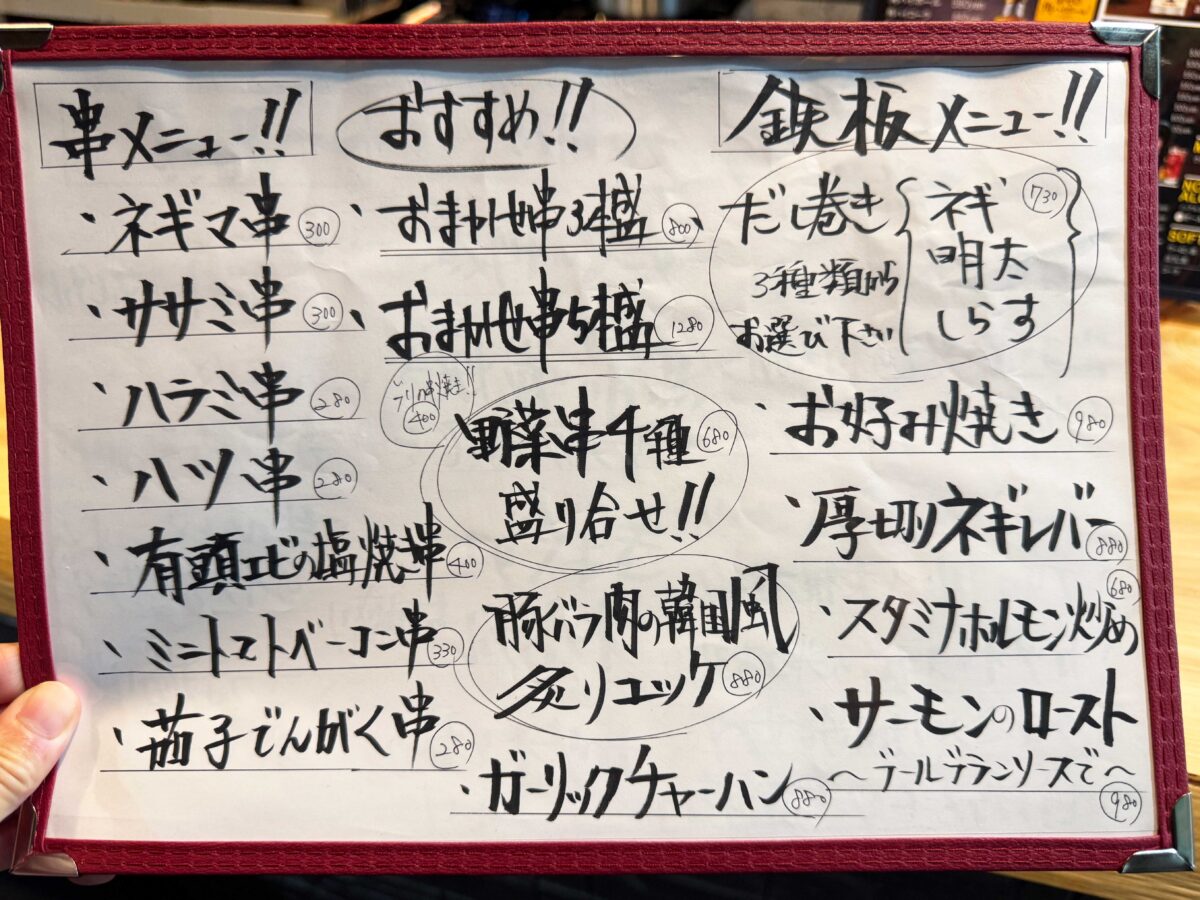 串メニュー!!
・ネギマ串 300
・ササミ串 300
・ハラミ串 280
・ハツ串 280
・有頭エビの塩焼き串 400
・ミニトマトベーコン串 330
・茄子でんがく串 280
おすすめ!!
・おまかせ串3本盛 800
・おまかせ串5本盛 1280
ブリの串焼き!!
400
野菜串4種 680
盛り合せ!!
豚バラ肉の韓国風
炙りユッケ 880
・ガーリックチャーハン 880
鉄板メニュー!!
・だし巻き
3種類から
お選び下さい
ネギ 730
明太
しらす
・お好み焼き 980
・厚切りネギレバー 880
・スタミナホルモン炒め 680
・サーモンのロースト
〜ブールブランソースで〜
980